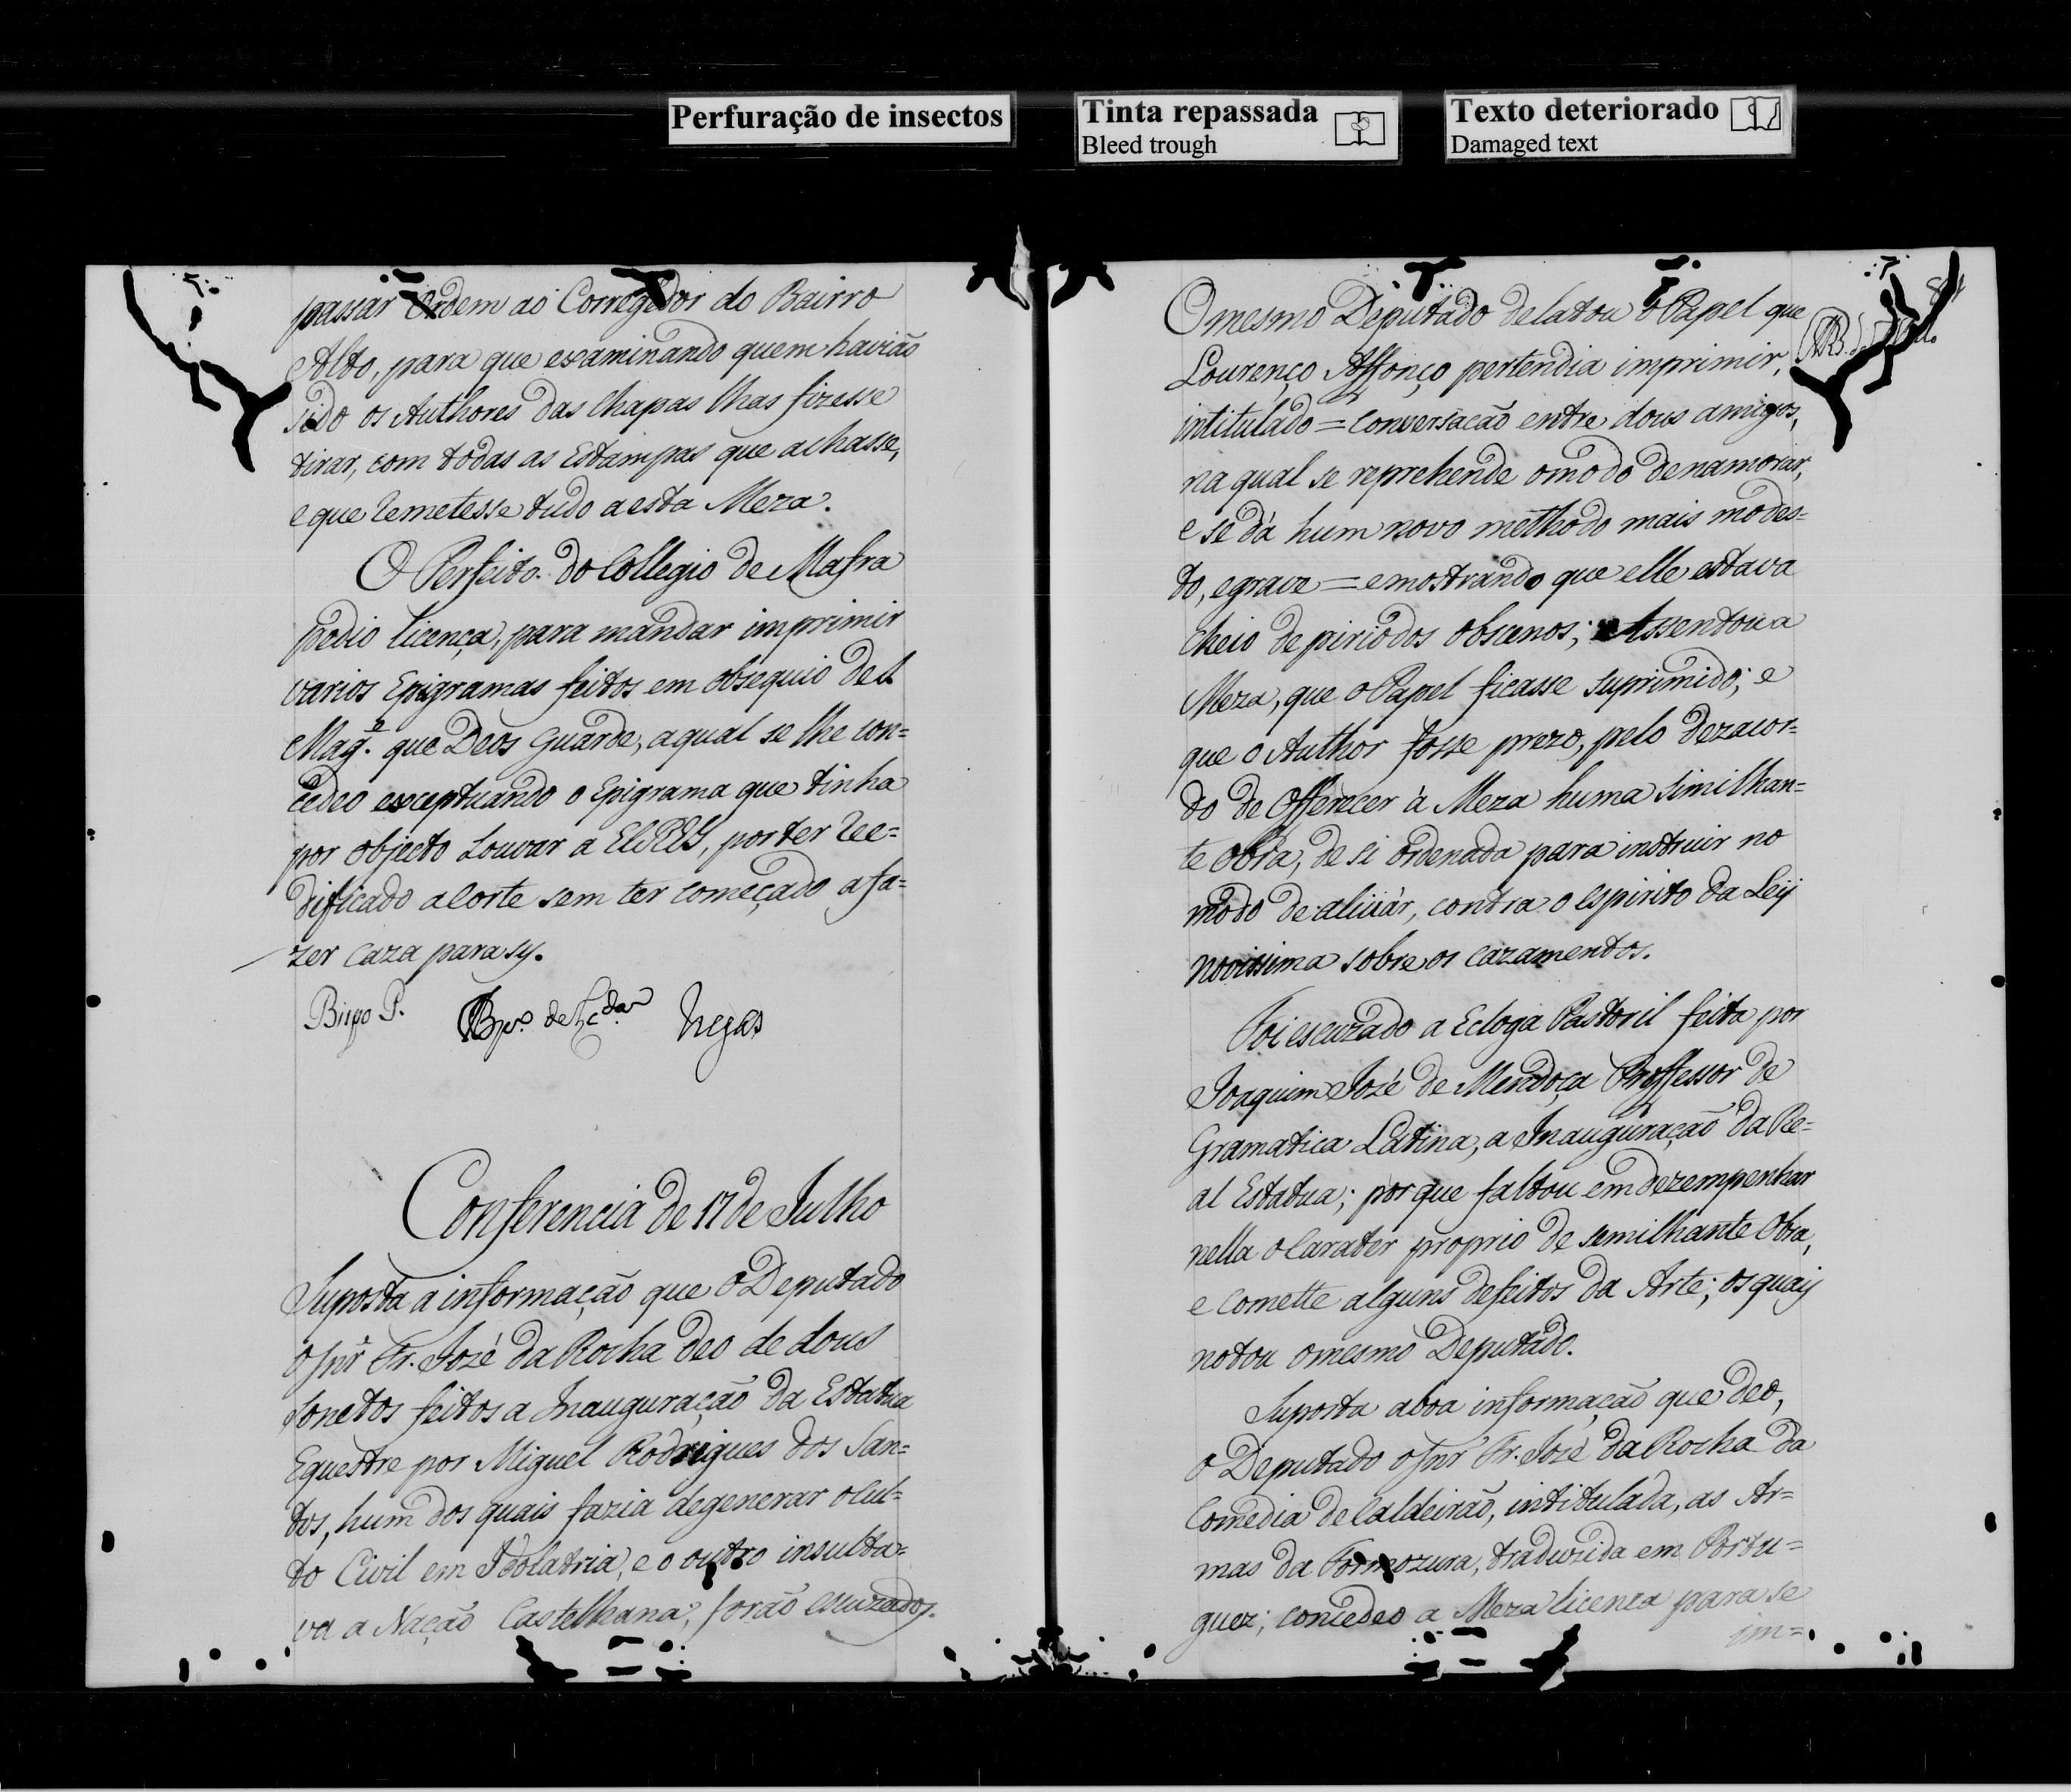 Perfuração de insectos
Tinta repassada
Bleed trough
Texto deteriorado
Damaged text
passar Ordem ao Corregedor do Bairro
Alto, para que examinando quem havião
sido os Authores das Chapas lhas fizesse
tirar, com todas as Estampas que achasse,
e que remetesse tudo a esta Meza.
O Perfeito do Collegio de Mafra
pedio licença, para mandar imprimir
varios Epigramas feitos em obsequio de S.
Mag.e que Deos Guarde, a qual se lhe con=
cedeo exceptuando o Epigrama que tinha
por objecto Louvar a ElREY, por ter ree=
dificado a Corte sem ter começado a fa=
zer Caza para sy.
Bispo P.
Conferencia de 17 de Julho
Suposta a informação que o Deputado
o Snr Fr. Jozé da Rocha deo de dous
Sonetos feitos a Inauguração da Estatua
Equestre por Miguel Rodrigues dos San=
tos, hum dos quais fazia degenerar o Cul=
to Civil em Idolatria, e o outro insulta=
va a Nação Castelhana, forão escuzados.
O mesmo Deputado delatou o Papel que
Lourenço Affonço pertendia imprimir,
intitulado = Conversação entre dous amigos,
na qual se reprehende o modo de namorar,
e se dá hum novo methodo mais modes=
to, e grave = e mostrando que elle estava
cheio de piriodos obscenos; Assentou a
Meza, que o Papel ficasse suprimido; e
que o Author fosse prezo, pelo dezacor=
do de Offerecer á Meza huma similhan=
te obra, de si ordenada para instruir no
modo de aliciár, contra o espirito da Ley
novissima sobre os cazamentos.
Foi escuzado a Ecloga Pastoril feita por
Joaquim Jozé de Mendoça Proffessor de
Gramatica Latina, a Inauguração da Re=
al Estatua; por que faltou em dezempenhar
nella o Carater proprio de semilhante Obra,
e comette alguns defeitos da Arte; os quays
notou o mesmo Deputado.
Suposta a boa informação que deo,
o Deputado o Snr Fr. Jozé da Rocha da
Comedia de Caldeirão, intitulada, as Ar=
mas da Formozura, traduzida em Portu=
guez; concedeo a Meza licença para se
im=